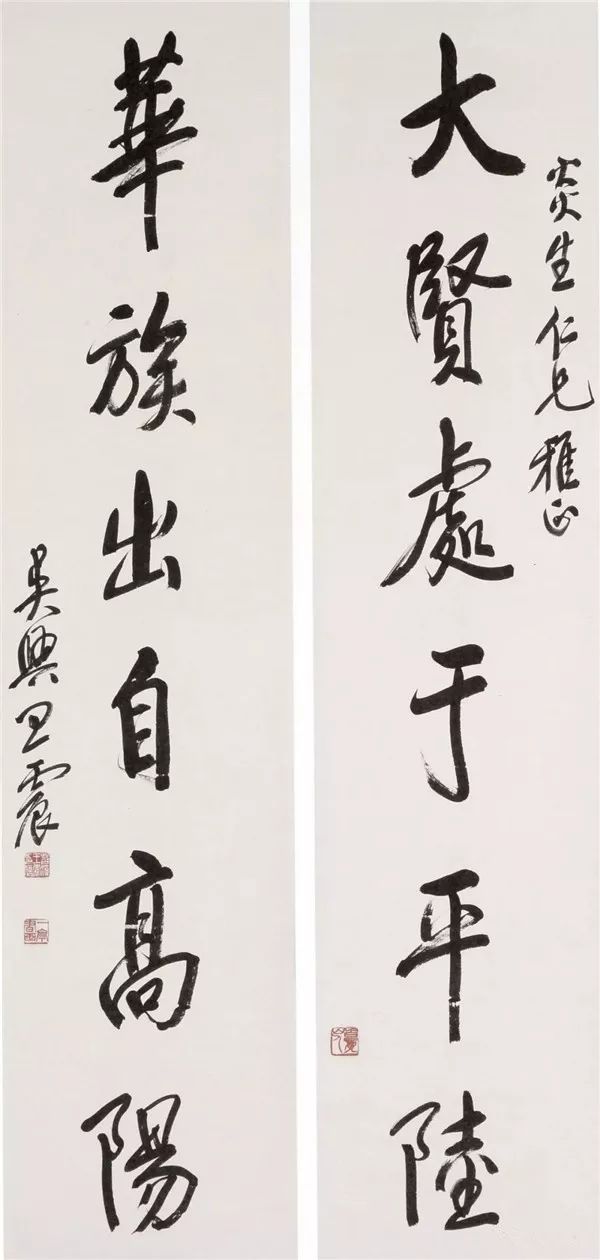 炎生仁兄雅正
大賢處于平陸
華族出自高陽
吳興王震